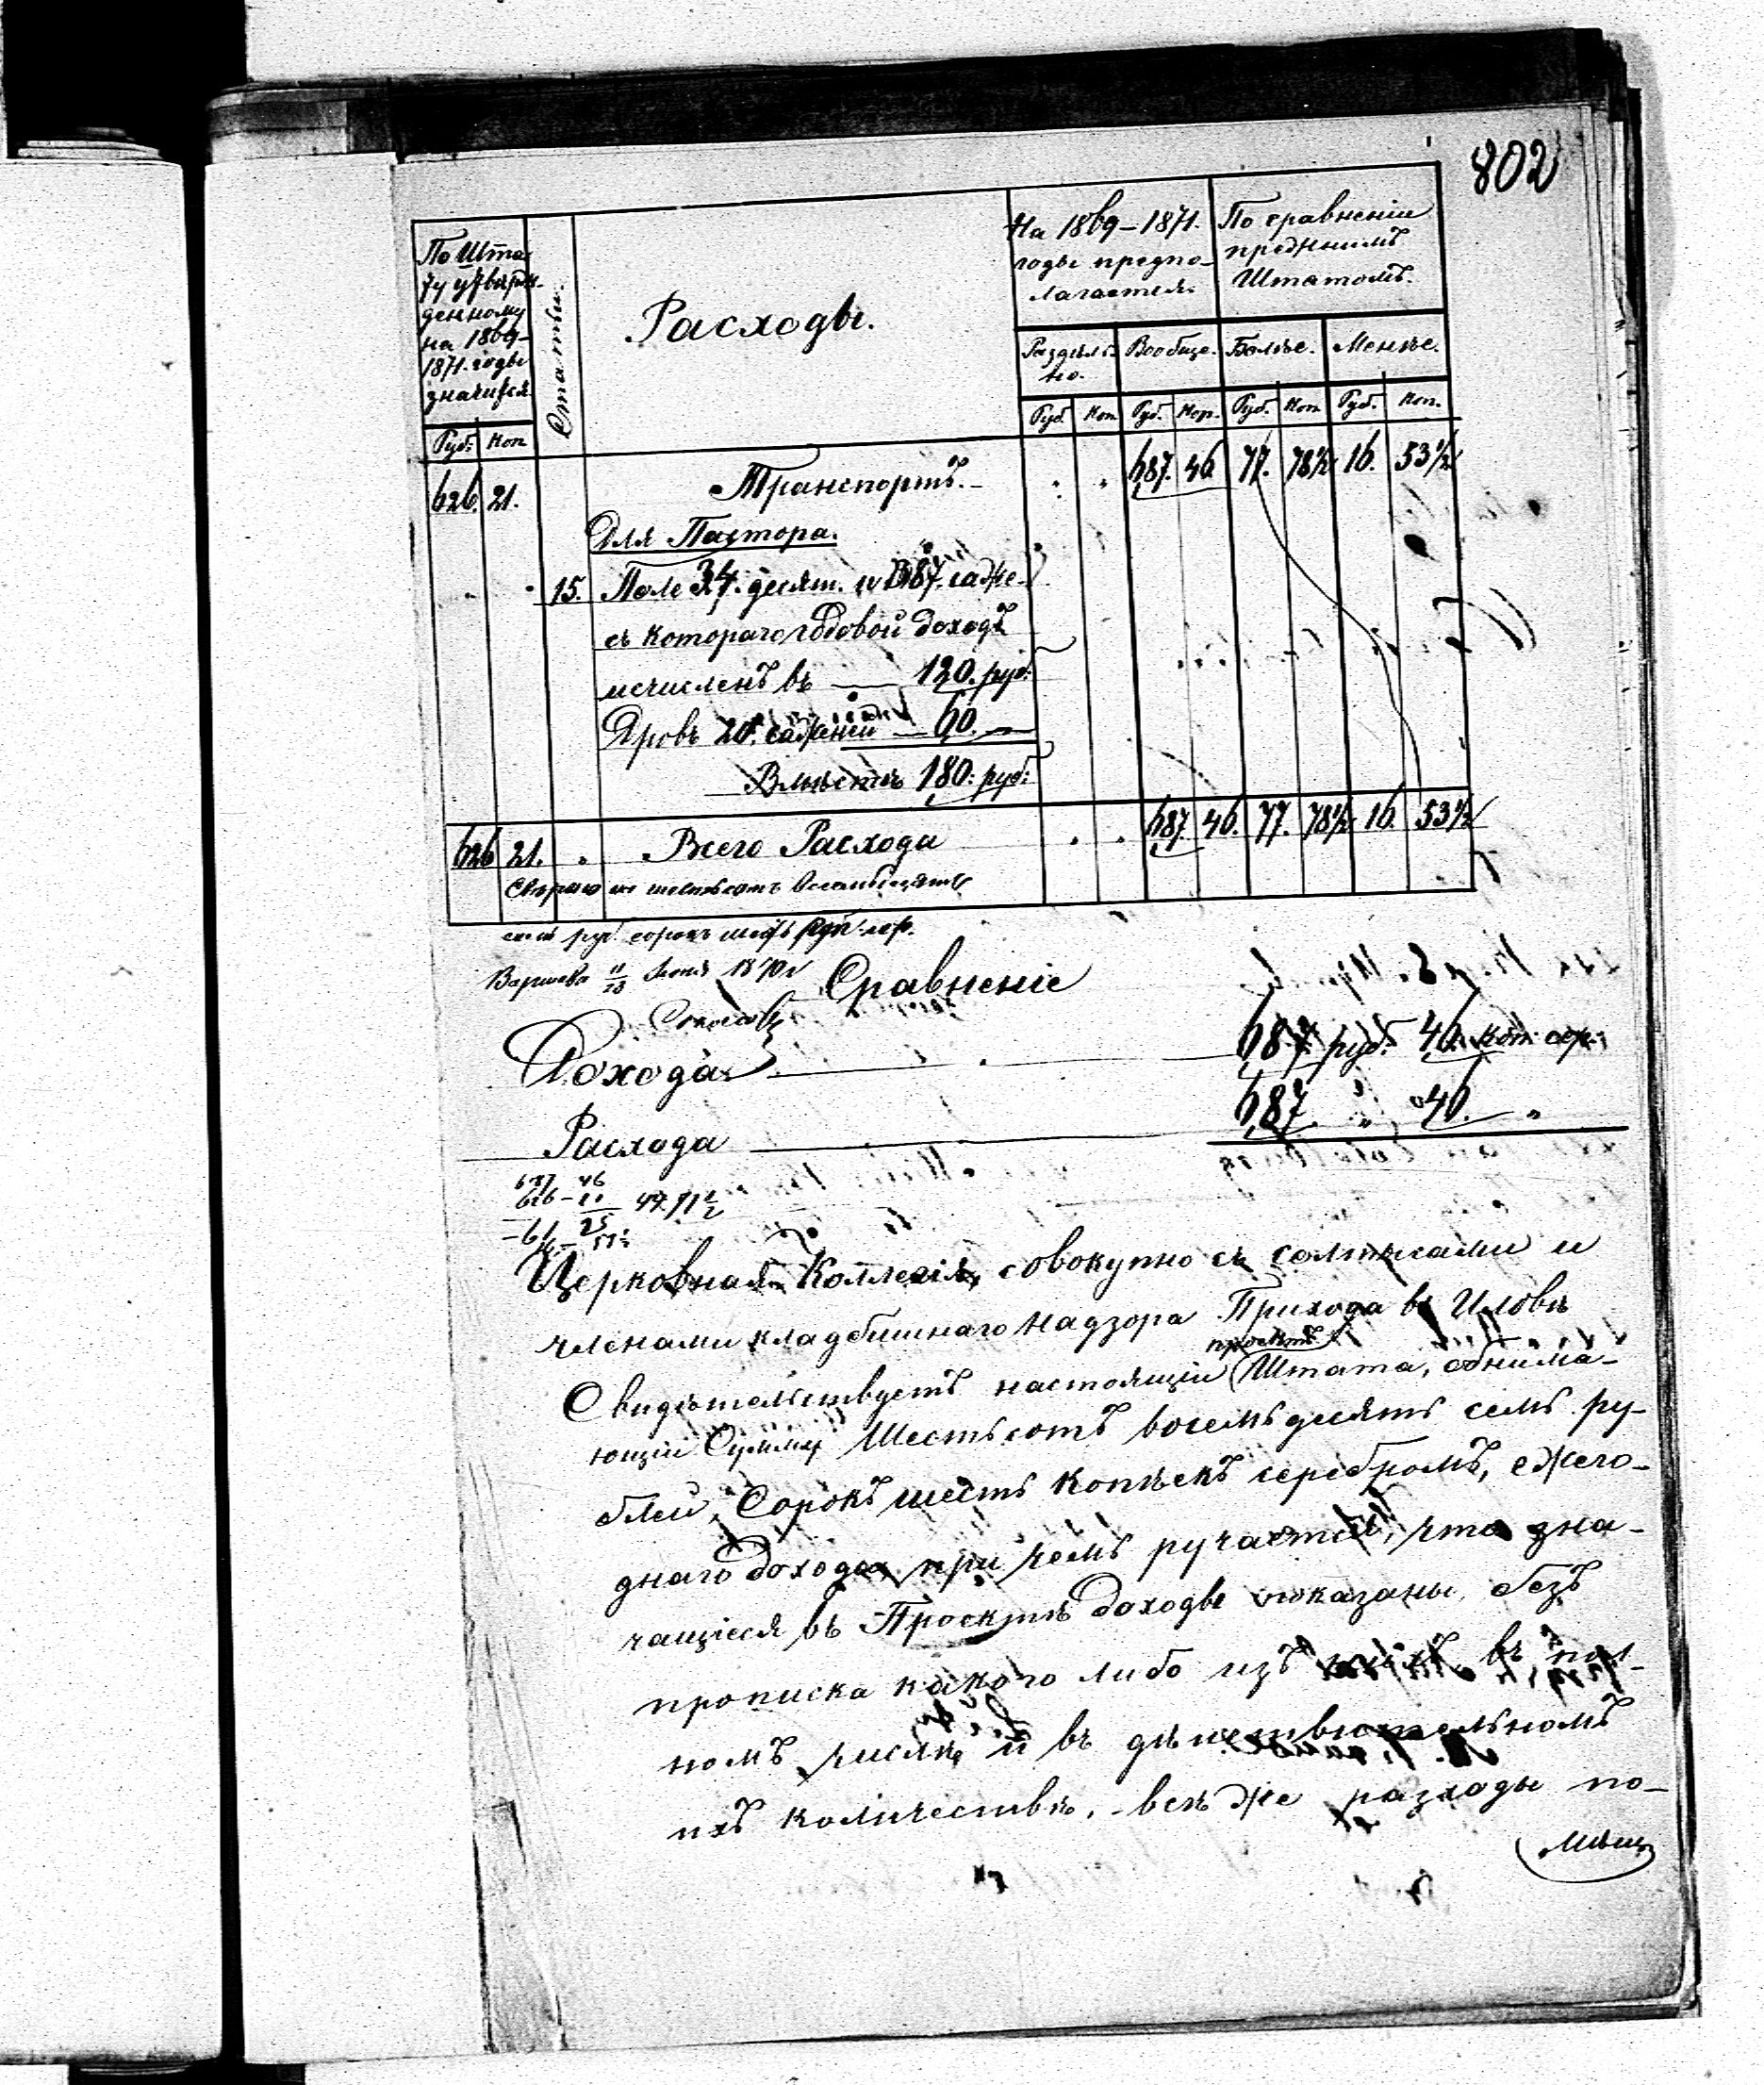 802
По Шта-
ту утверж-
денному
на 1869-
1871. годы
значится
Статьи.
Расходы.
На 1869-1871.
годы предпо-
лагается.
По сравненiи
преднимъ
Штатомъ.
Раздѣль-
но.
Вообще.
Болѣе.
Менѣе.
Руб. Коп Руб. Коп Руб. Кор. Руб. Коп Руб. Коп.
626. 21. Транспортъ. 687. 46 77. 78½ 16. 53½
Для Пастора.
15. Поле 34. десят. и 1387. саже-
съ котораго годовой доходъ
исчисленъ въ — 120. руб:
Дровъ 20. саженей — 60. —
Вмѣстѣ 180: руб:
626 21. Всего Расхода 687. 46. 77. 78½ 16. 53½
шестьсотъ восемьдесятъ
семь руб. сорокъ шесть коп. сер.
Варшава 11/23 1870 г
Сравненiе
Дохода — 687 руб. 46. коп. сер.
Расхода — 687 " 46. — "
687 46
626 - 21 49.71½
- 61 - 25
Церковная Коллегія, совокупно съ солтысами и
членами кладбищнаго надзора Прихода въ Иловѣ
проектъ
Свидѣтельствуетъ настоящiй Штата, обнима-
ющiй Сумму Шестьсотъ восемьдесятъ семь ру-
блей, Сорокъ шесть Копѣекъ серебромъ, ежего-
днаго дохода, при чемъ ручается, что зна-
чащiеся въ Проектѣ доходы показаны, безъ
прописка какого либо изъ нихъ, въ пол-
номъ числѣ и въ дѣйствительномъ
ихъ количествѣ, - всѣ же разходы по-